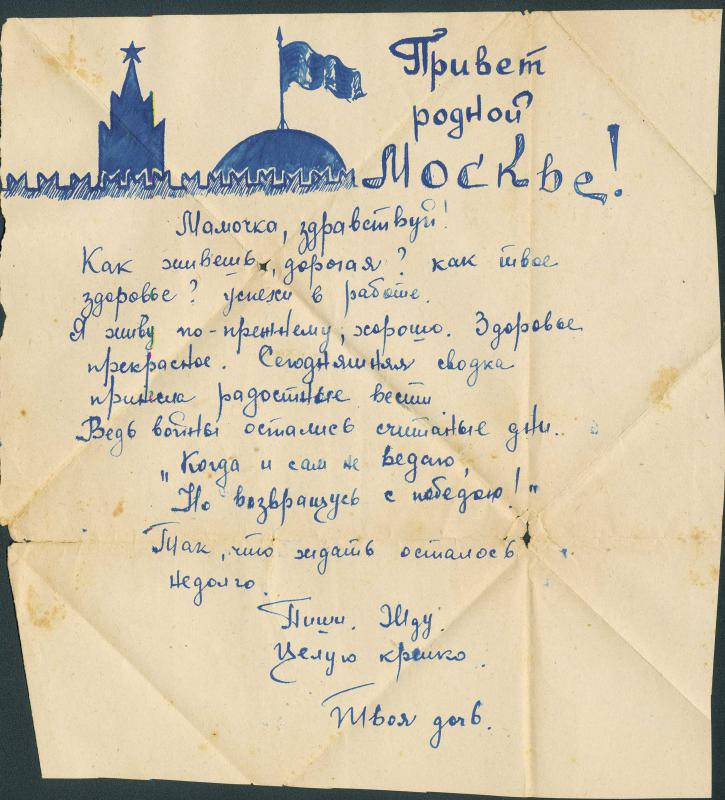 Привет
родной
Москве!
Мамочка, здравствуй!
Как живешь, дорогая? как твое
здоровье? успехи в работе.
Я живу по-прежнему, хорошо. Здоровье
прекрасное. Сегодняшняя сводка
принесла радостные вести
Ведь войны остались считаные дни..
„Когда и сам не ведаю,
Но возвращусь с победою!"
Так, что ждать осталось
недолго.
Пиши. Жду.
Целую крепко.
Твоя дочь.